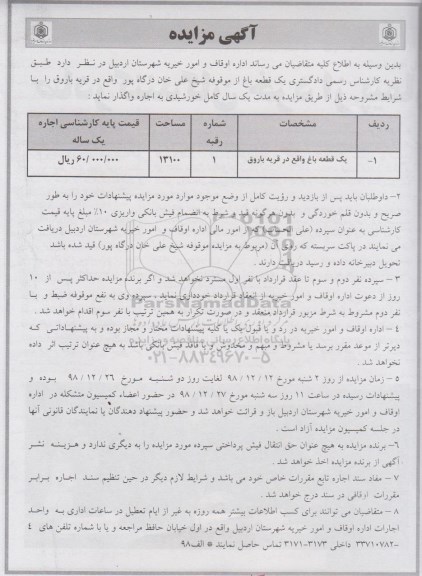 آگهی مزایده
بدین وسیله به اطلاع کلیه متقاضیان می رساند اداره اوقاف و امور خیریه شهرستان اردبیل در نظر دارد طبق
نظریه کارشناس رسمی دادگستری یک قطعه باغ از موقوفه شیخ علی خان درگاه پور واقع در قریه باروق را با
شرایط مشروحه ذیل از طریق مزایده به مدت یک سال کامل خورشیدی به اجاره واگذار نماید :
ردیف مشخصات شماره رقبه مساحت قیمت پایه کارشناسی اجاره یک ساله
۱- یک قطعه باغ واقع در قریه باروق ۱ ۱۳۱۰۰ ۶۰/۰۰۰/۰۰۰ ریال
۲- داوطلبان باید پس از بازدید و رؤیت کامل از وضع موجود موارد مورد مزایده پیشنهادات خود را به طور
صریح و بدون قلم خوردگی و بدون هرگونه قید و شرط به انضمام فیش بانکی واریزی ۱۰٪ مبلغ پایه قیمت
کارشناسی به عنوان سپرده (علی الحساب) که از امور مالی اداره اوقاف و امور خیریه شهرستان اردبیل دریافت
می نمایند در پاکت سربسته که روی آن (مربوط به مزایده موقوفه شیخ علی خان درگاه پور) قید شده باشد
تحویل دبیرخانه داده و رسید دریافت دارند .
۳ – سپرده نفر دوم و سوم تا عقد قرارداد با نفر اول مسترد نخواهد شد و اگر برنده مزایده حداکثر پس از ۱۰
روز از دعوت اداره اوقاف و امور خیریه از انعقاد قرارداد خودداری نماید ، سپرده وی به نفع موقوفه ضبط و با
نفر دوم مشروط به شرط مزبور قرارداد منعقد و در صورت تکرار به همین ترتیب با نفر سوم اقدام خواهد شد .
۴ – اداره اوقاف و امور خیریه در رد و یا قبول یک یا کلیه پیشنهادات مختار و مجاز بوده و به پیشنهاداتی که
دیرتر از موعد مقرر برسد یا مشروط و مبهم و مخدوش و یا فاقد فیش بانکی باشد به هیچ عنوان ترتیب اثر داده
نخواهد شد .
۵ – زمان مزایده از روز ۲ شنبه مورخ ۹۸/۱۲/۱۲ لغایت روز دو شنبه مورخ ۹۸/۱۲/۲۶ بوده و
پیشنهادات رسیده در ساعت ۱۱ روز سه شنبه مورخ ۹۸/۱۲/۲۷ در حضور اعضاء کمیسیون متشکله در اداره
اوقاف و امور خیریه شهرستان اردبیل باز و قرائت خواهد شد و حضور پیشنهاد دهندگان یا نمایندگان قانونی آنها
در جلسه کمیسیون مزایده آزاد است .
۶– برنده مزایده به هیچ عنوان حق انتقال فیش پرداختی سپرده مورد مزایده را به دیگری ندارد و هزینه نشر
آگهی از برنده مزایده اخذ خواهد شد .
۷ – مفاد سند اجاره تابع مقررات خاص خود می باشد و شرایط لازم دیگر در حین تنظیم سند اجاره برابر
مقررات اوقافی در سند درج خواهد شد .
۸ – متقاضیان می توانند برای کسب اطلاعات بیشتر همه روزه به غیر از ایام تعطیل در ساعات اداری به واحد
اجارات اداره اوقاف و امور خیریه شهرستان اردبیل واقع در اول خیابان حافظ مراجعه و یا با شماره تلفن های ۴
-۳۳۷۱۰۷۸۲ داخلی ۳۱۷۳-۳۱۷۱ تماس حاصل نمایند * الف۹۸
ParsNamadData
پایگاه اطلاع رسانی مناقصه و مزایده
۰۲۱-۸۸۳۴۹۶۷۰-۵